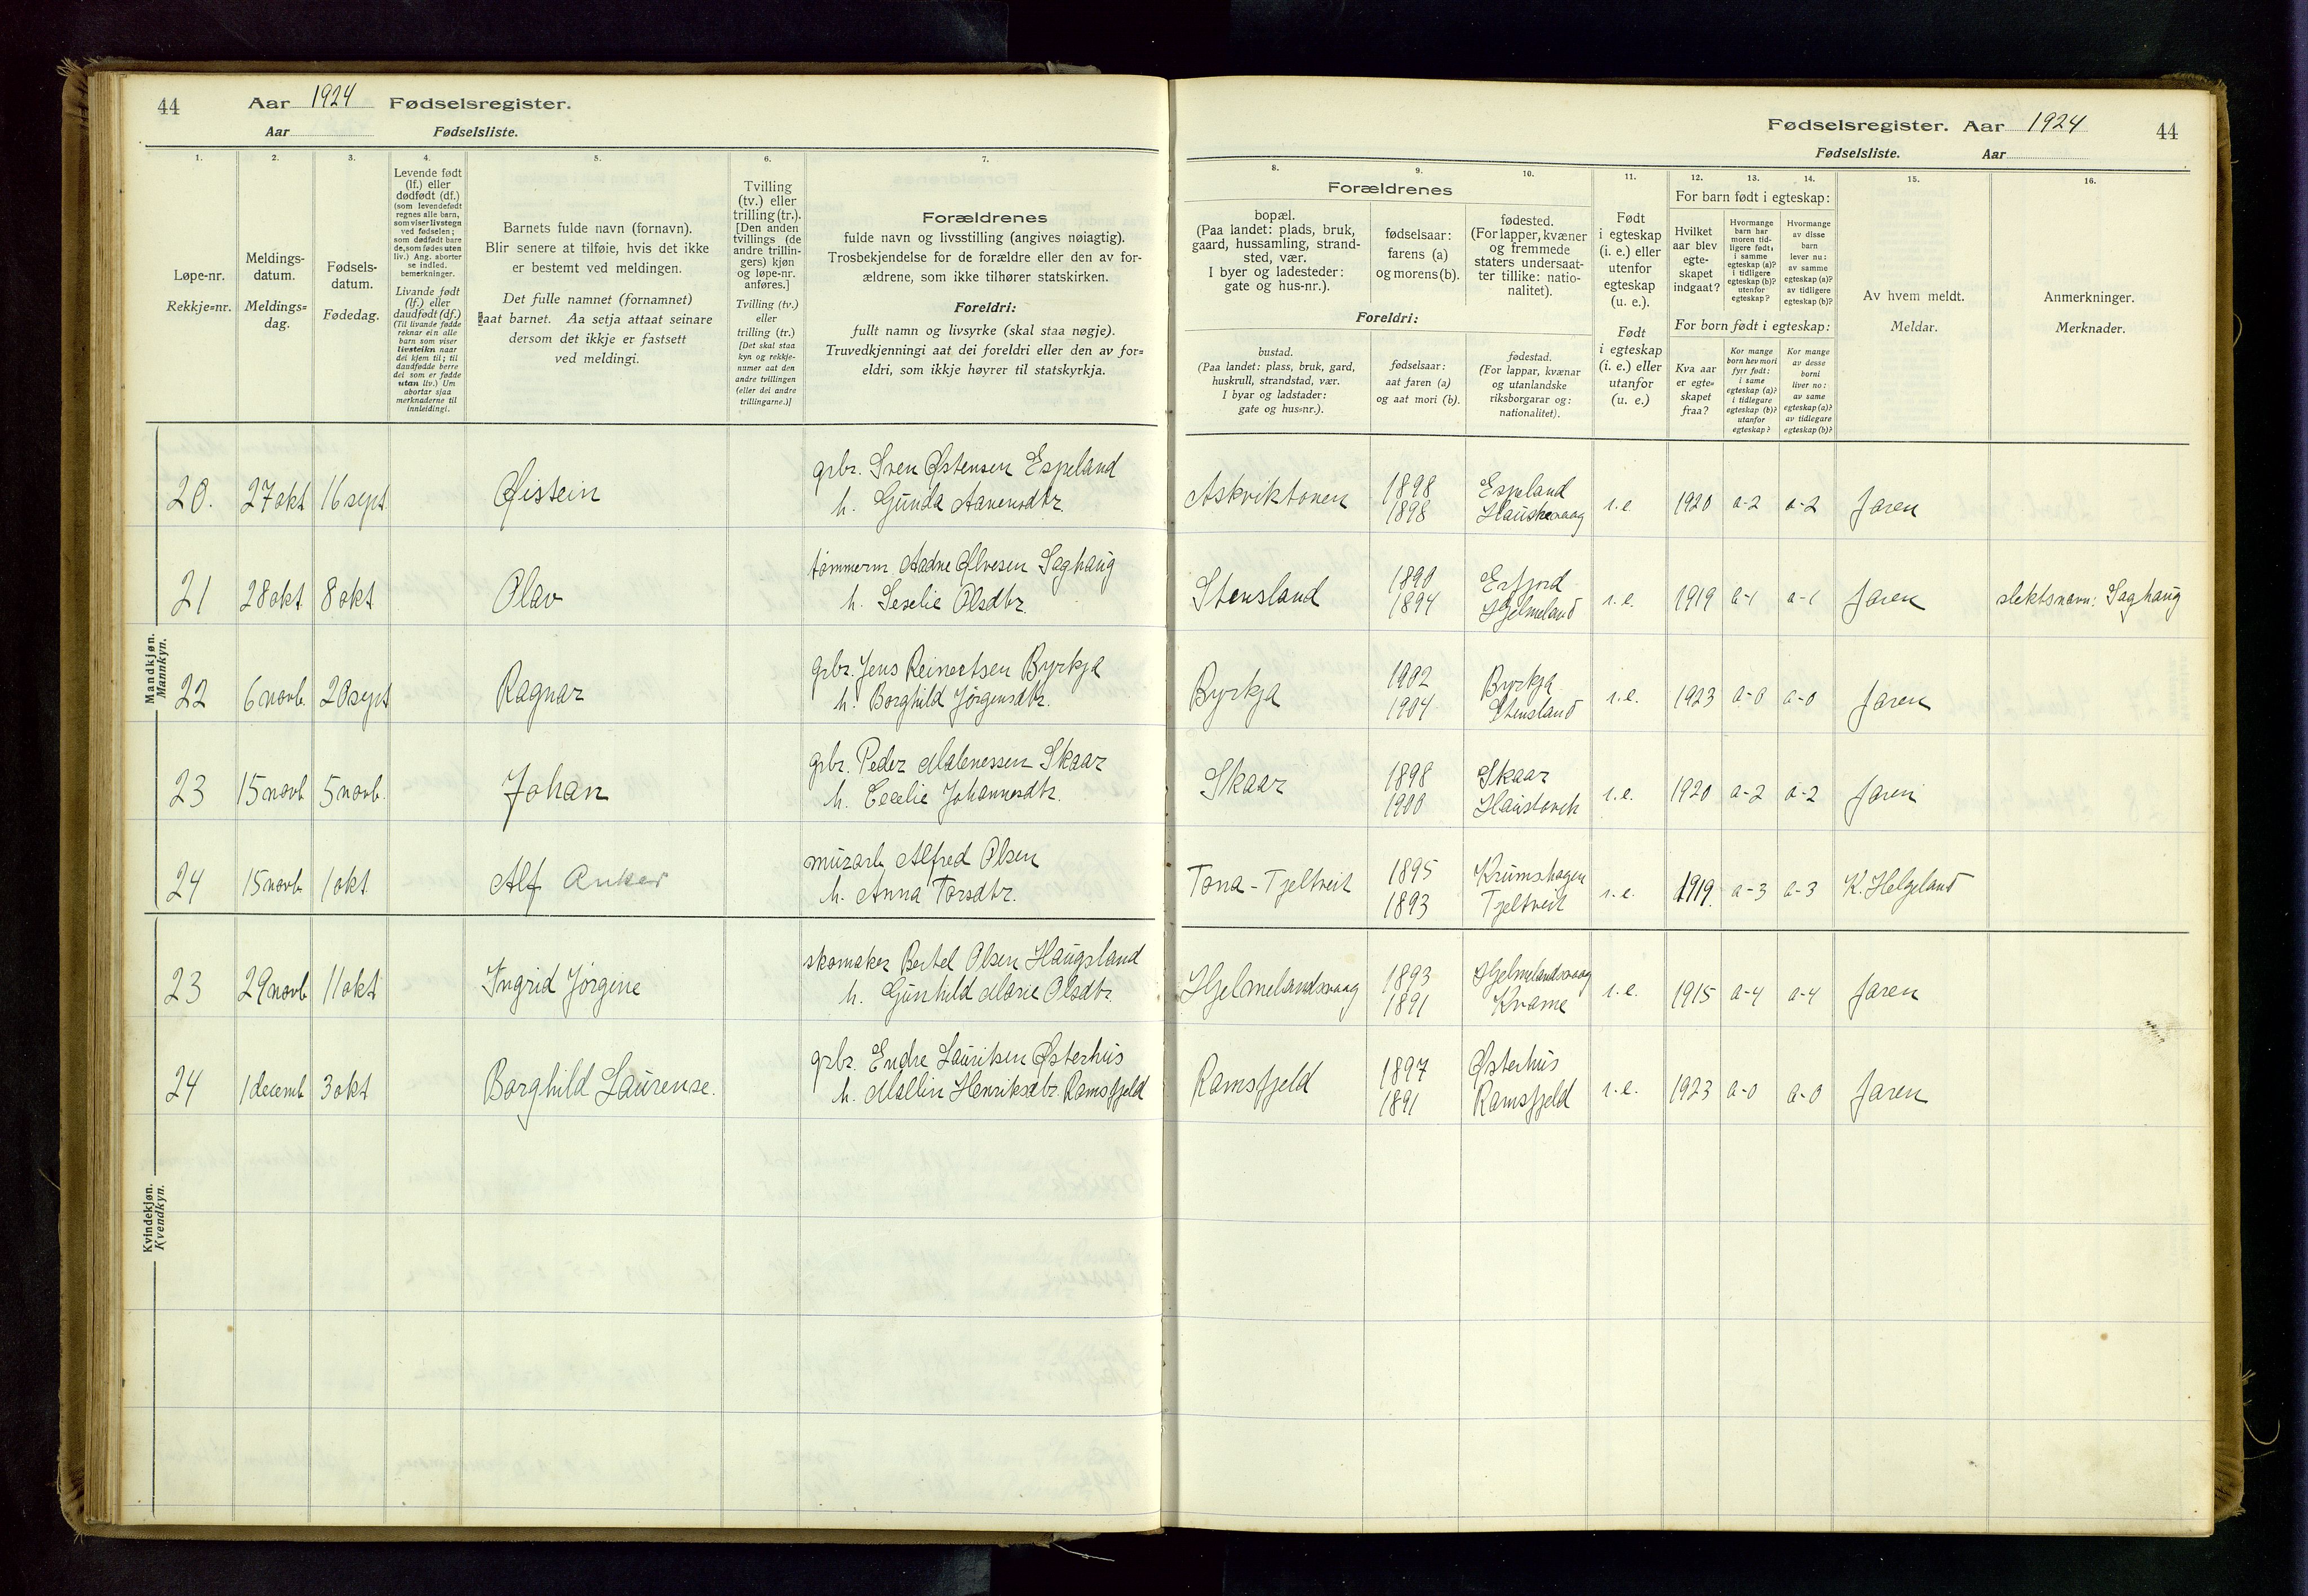 44 Aar 1924 Fødselsregister.
Aar Fødselsliste.
1. 2. 3. 4. 5. 6. 7.
Løpe-nr.
Rekkje=nr.
Meldings-
datum.
Meldings=
dag.
Fødsels-
datum.
Fødedag.
Levende født
(lf.) eller
dødfødt (df.)
(som levendefødt
regnes alle barn,
som viser livstegn
ved fødselen;
som dødfødt bare
de, som fødes uten
liv.) Ang. aborter
se indled.
bemerkninger.
Livande født
(lf.) eller
daudfødt (df.)
(Til livande fødde
reknar ein alle
barn som viser
livsteikn naar
dei kjem til; til
daudfødde berre
dei som er fødde
utan liv.) Um
abortar sjaa
merknaderne til
innleidingi.
Barnets fulde navn (fornavn).
Blir senere at tilføie, hvis det ikke
er bestemt ved meldingen.
Det fulle namnet (fornamnet)
aat barnet. Aa setja attaat seinare
dersom det ikkje er fastsett
ved meldingi.
Tvilling
(tv.) eller
trilling (tr.).
[Den anden
tvillings (de
andre trillin-
gers) kjøn
og løpe-nr.
anføres.]
Tvilling (tv.)
eller
trilling (tr.)
[Det skal staa
kyn og rekkje-
numer aat den
andre tvillingen
(eller dei andre
trillingarne.)]
Forældrenes
fulde navn og livsstilling (angives nøiagtig).
Trosbekjendelse for de forældre eller den av for-
ældrene, som ikke tilhører statskirken.
Foreldri:
fullt namn og livsyrke (skal staa nøgje).
Truvedkjenningi aat dei foreldri eller den av for=
eldri, som ikkje høyrer til statskyrkja.
Mandkjøn.
Mannkyn.
20. 27 okt 16 sept. Øistein
grbr. Sven Østensen Espeland
h. Gunda Aanensdtr.
21 28 okt. 8 okt Olav
tømmerm Aadne Ølvesen Saghaug
h. Seselie Olsdtr.
22 6 novb. 20 sept Ragnar
grbr. Jens Reinertsen Byrkja
h. Borghild Jørgensdtr.
23 15 novb 5 novb. Johan
grbr. Peder Malenessen Skaar
h. Cecelie Johannesdtr.
24 15 novb 1 okt Alf Anker
murarb. Alfred Olsen
h. Anna Torsdtr.
Kvindekjøn.
Kvendkyn.
23 29 novb 11 okt Ingrid Jørgine
skomaker Bertel Olsen Haugsland
h. Gunhild Marie Olsdtr.
24 1 decemb 3 okt Borghild Laurense.
grbr. Endre Lauritsen Østerhus
h. Mallin Henriksdtr. Ramsfjeld
Fødselsregister. Aar 1924 44
Fødselsliste. Aar
8. 9. 10. 11. 12. 13. 14. 15. 16.
Forældrenes
bopæl.
(Paa landet: plads, bruk,
gaard, hussamling, strand-
sted, vær.
I byer og ladesteder:
gate og hus-nr.).
fødselsaar:
farens (a)
og morens (b).
fødested.
(For lapper, kvæner
og fremmede
staters undersaat-
ter tillike: natio-
nalitet).
Foreldri:
bustad.
(Paa landet: plass, bruk, gard,
huskrull, strandstad, vær.
I byar og ladstader:
gate og hus=nr.).
fødselsaar:
aat faren (a)
og aat mori (b).
fødestad.
(For lappar, kvænar
og utanlandske
riksborgarar og:
nationalitet).
Født
i egteskap
(i. e.) eller
utenfor
egteskap
(u. e.).
Født
i egteskap
(i. e.) eller
utanfor
egteskap
(u. e.)
For barn født i egteskap:
Hvilket
aar blev
egte-
skapet
indgaat?
Hvormange
barn har
moren tid-
ligere født,
i samme
egteskap (a)?
i tidligere
egteskap (b)?
utenfor
egteskap?
Hvormange
av disse
barn
lever nu:
av samme
egteskap (a)?
av tidligere
egteskap (b)?
For born født i egteskap:
Kva aar
er egte=
skapet
fraa?
Kor mange
born hev mori
fyrr født:
i same
egteskap (a)?
i tidlegare
egteskap (b)?
utanfor
egteskap?
Kor mange
av desse
borni
liver no:
av same
egteskap (a)?
av tidlegare
egteskap (b)?
Av hvem meldt.
Meldar.
Anmerkninger.
Merknader.
Askviktonen 1898 Espeland i.e 1920 a-2 a-2 Jaren
1898 Hauskevaag
Stensland 1890 Erfjord i.e. 1919 a-1 a-1 Jaren slektsnavn: Saghaug
1894 Hjelmeland
Byrkja 1902 Byrkja i.e. 1923 a-0 a-0 Jaren
1904 Stensland
Skaar 1898 Skaar i.e. 1920 a-2 a-2 Jaren
1900
Tona-Tjeltveit 1895 Krumshagen i.e. 1919. a-3 a-3 K. Helgeland
1893 Tjeltveit
Hjelmelandsvaag 1893 Hjelmelandsvaag i.e. 1915 a-4 a-4 Jaren
1891 Kvame
Ramsfjeld 1897 Østerhus i.e. 1923 a-0 a-0 Jaren
1891 Ramsfjeld